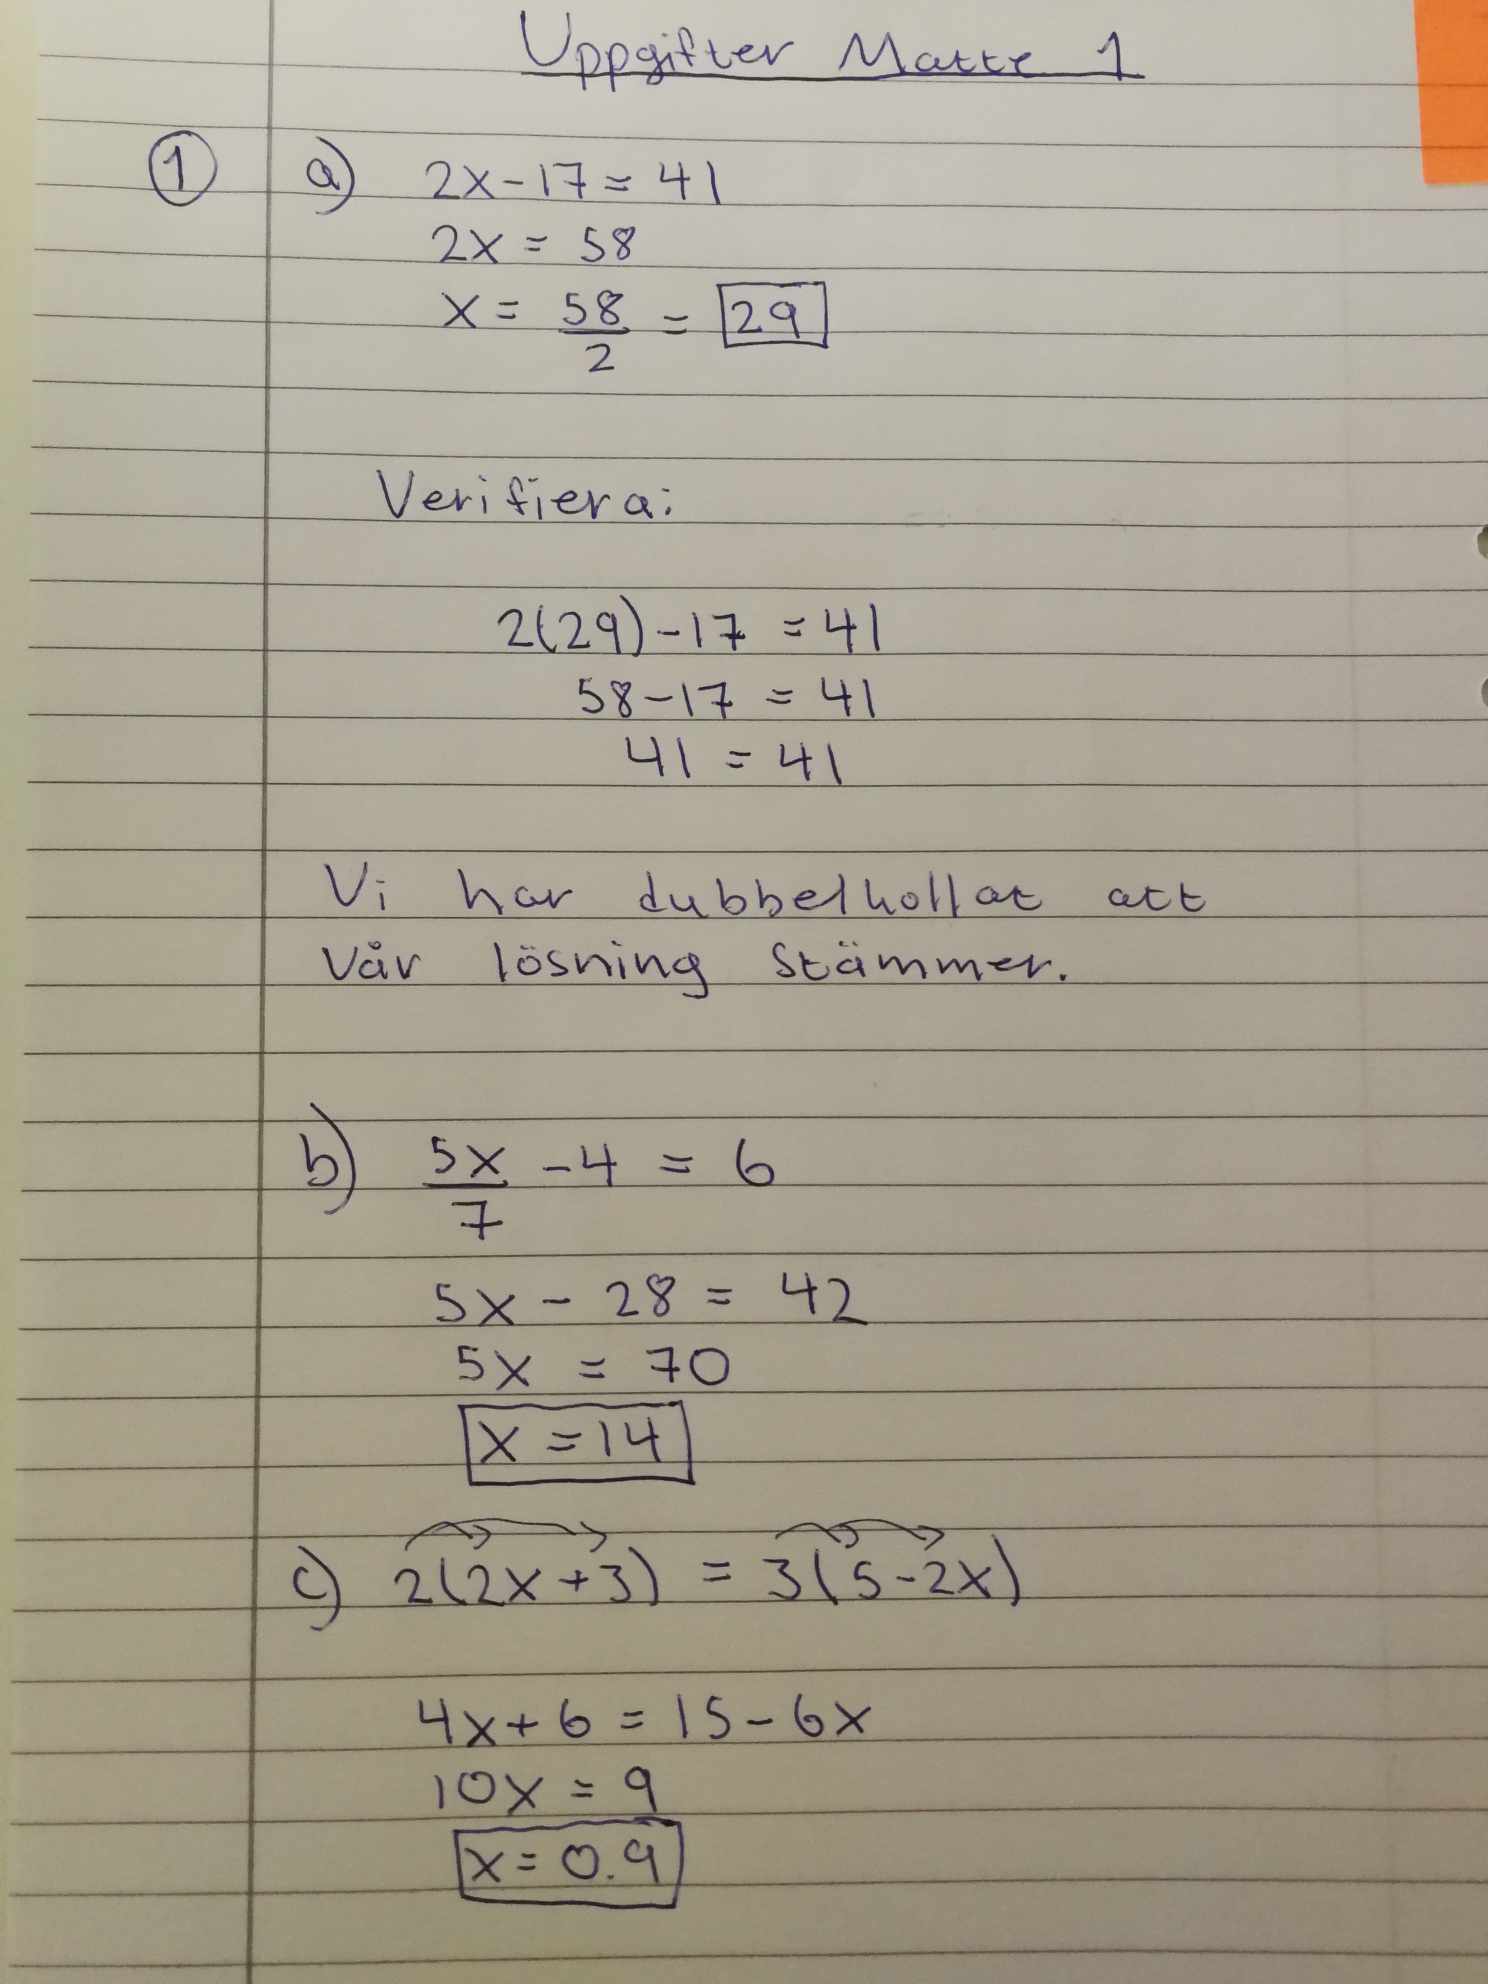 Uppgifter Matte 1
① a) 2x-17=41
2x = 58
x = 58/2 = 29
Verifiera:
2(29)-17 = 41
58-17 = 41
41 = 41
Vi har dubbelkollat att
vår lösning stämmer.
b) 5x/7 -4 = 6
5x - 28 = 42
5x = 70
x = 14
c) 2(2x+3) = 3(5-2x)
4x+6 = 15-6x
10x = 9
x = 0.9